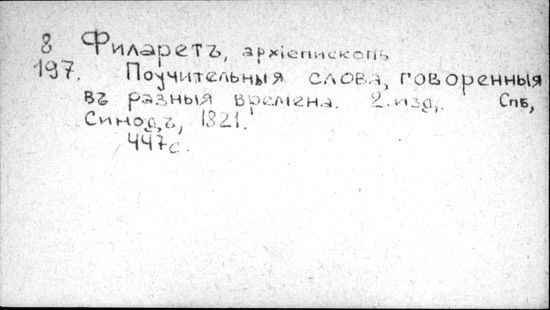 8 Филаретъ, архіепископъ
197. Поучительныя слова, говоренныя
въ разныя времена. 2.изд,. Спб,
Синодъ, 1821.
447с.